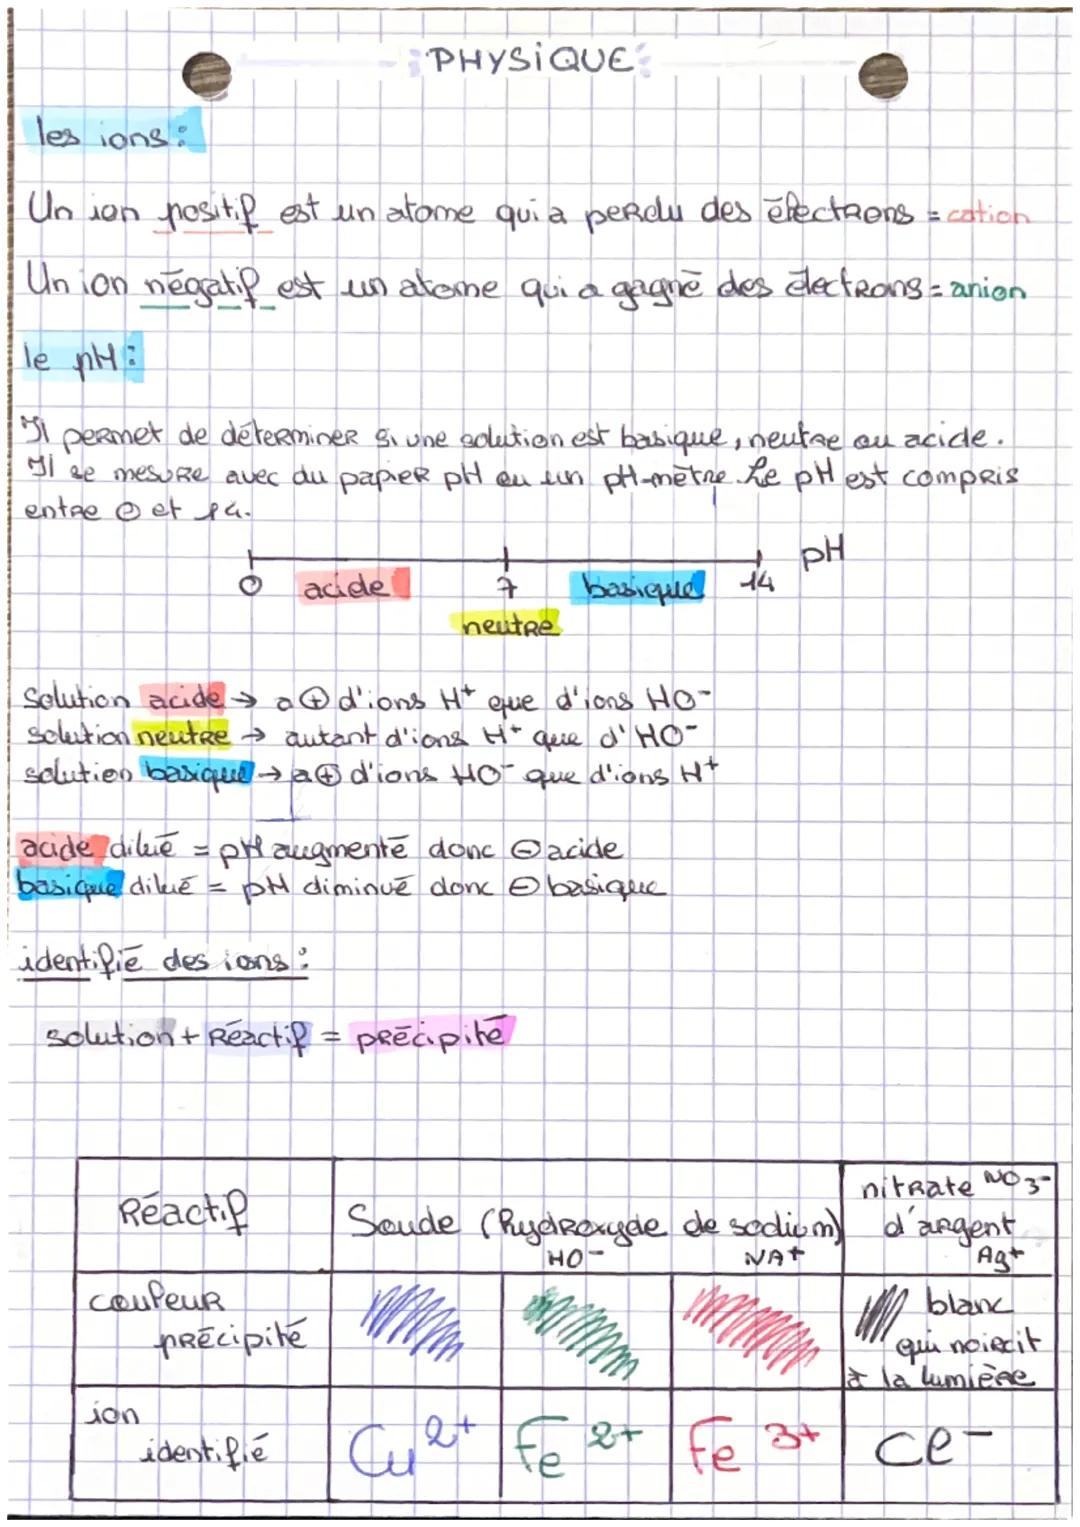 PHYSIQUE
les ions :
Un ion positif est un atome qui a perdu des électrons = cation
Un ion négatif est un atome qui a gagné des électrons = anion
le pH :
Il permet de déterminer si une solution est basique, neutre ou acide.
Il se mesure avec du papier pH ou un pH-mètre. Le pH est compris
entre 0 et 14.
pH
0 acide 7 basique 14
neutre
Solution acide → a ⊕ d'ions H⁺ que d'ions HO⁻
solution neutre → autant d'ions H⁺ que d'HO⁻
solution basique → a ⊕ d'ions HO⁻ que d'ions H⁺
acide dilué = pH augmenté donc ⊖ acide
basique dilué = pH diminué donc ⊖ basique
identifié des ions :
solution + Réactif = précipité
Réactif
Soude (hydroxyde de sodium)
HO⁻ NA⁺
nitrate NO3⁻
d'argent
Ag⁺
couleur
précipité
blanc
qui noircit
à la lumière
ion
identifié
Cu²⁺ Fe²⁺ Fe³⁺ Cl⁻